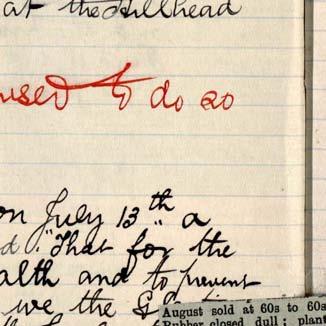 at the Hillhead
used to do so
on July 13th a
d. "That for the
alth and to prevent
we the G
August sold at 60s to 60s
Rubber closed dull; plant